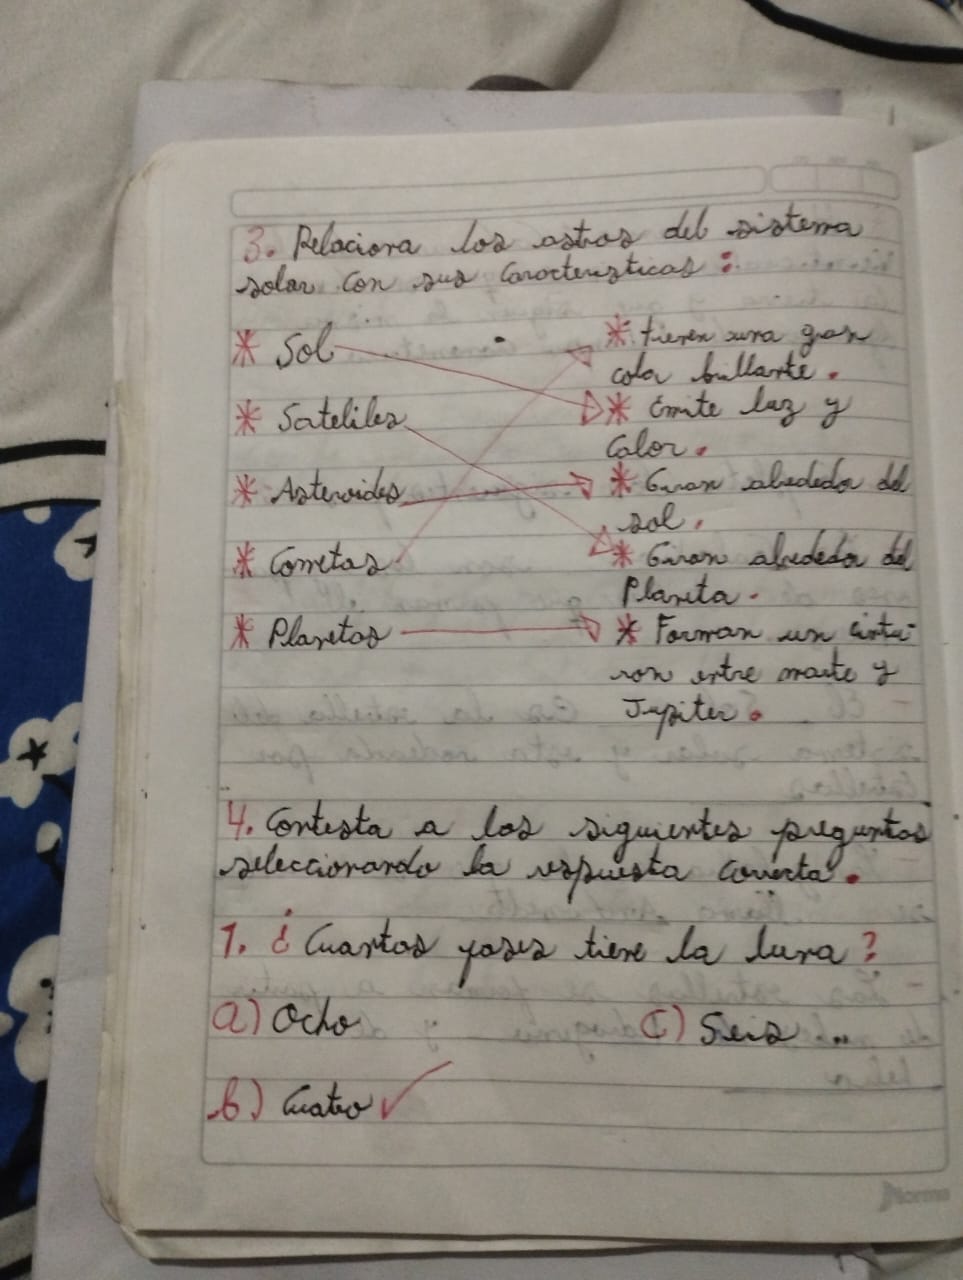 3. Relaciona los astros del sistema
solar con sus caracteristicas :
* Sol
* tienen una gran
cola brillante.
* Satelites
* Emite luz y
Calor.
* Asteroides
* Giran alrededor del
sol.
* Cometas
* Giran alrededor del
Planeta.
* Planetas
* Forman un cintu-
ron entre marte y
Jupiter.
4. Contesta a las siguientes preguntas
seleccionando la respuesta correcta.
1. ¿ Cuantas fases tiene la luna ?
a) Ocho
c) Seis
b) Cuatro ✓
Norma